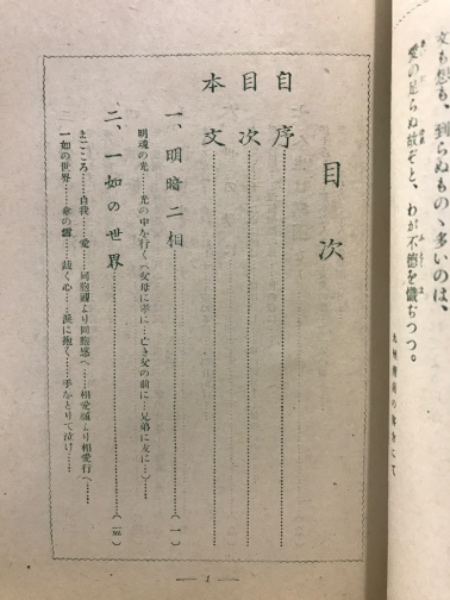 文も想も、到らぬもの、多いのは、
愛の足らぬ故ぞと、わが不徳を懺ぢつつ。
目次
自序
目次
本文
一、明暗二相……(一)
明魂の光……光の中を行く(父母に孝に…亡き女の前に…兄弟に友に…)……
二、一如の世界……
まごころ……自我……愛……同胞國より同胞感へ……相愛願より相愛行へ……
一如の世界……傘の雪……裁く心……涙に抱く……手をとりて泣け……
— 1 —